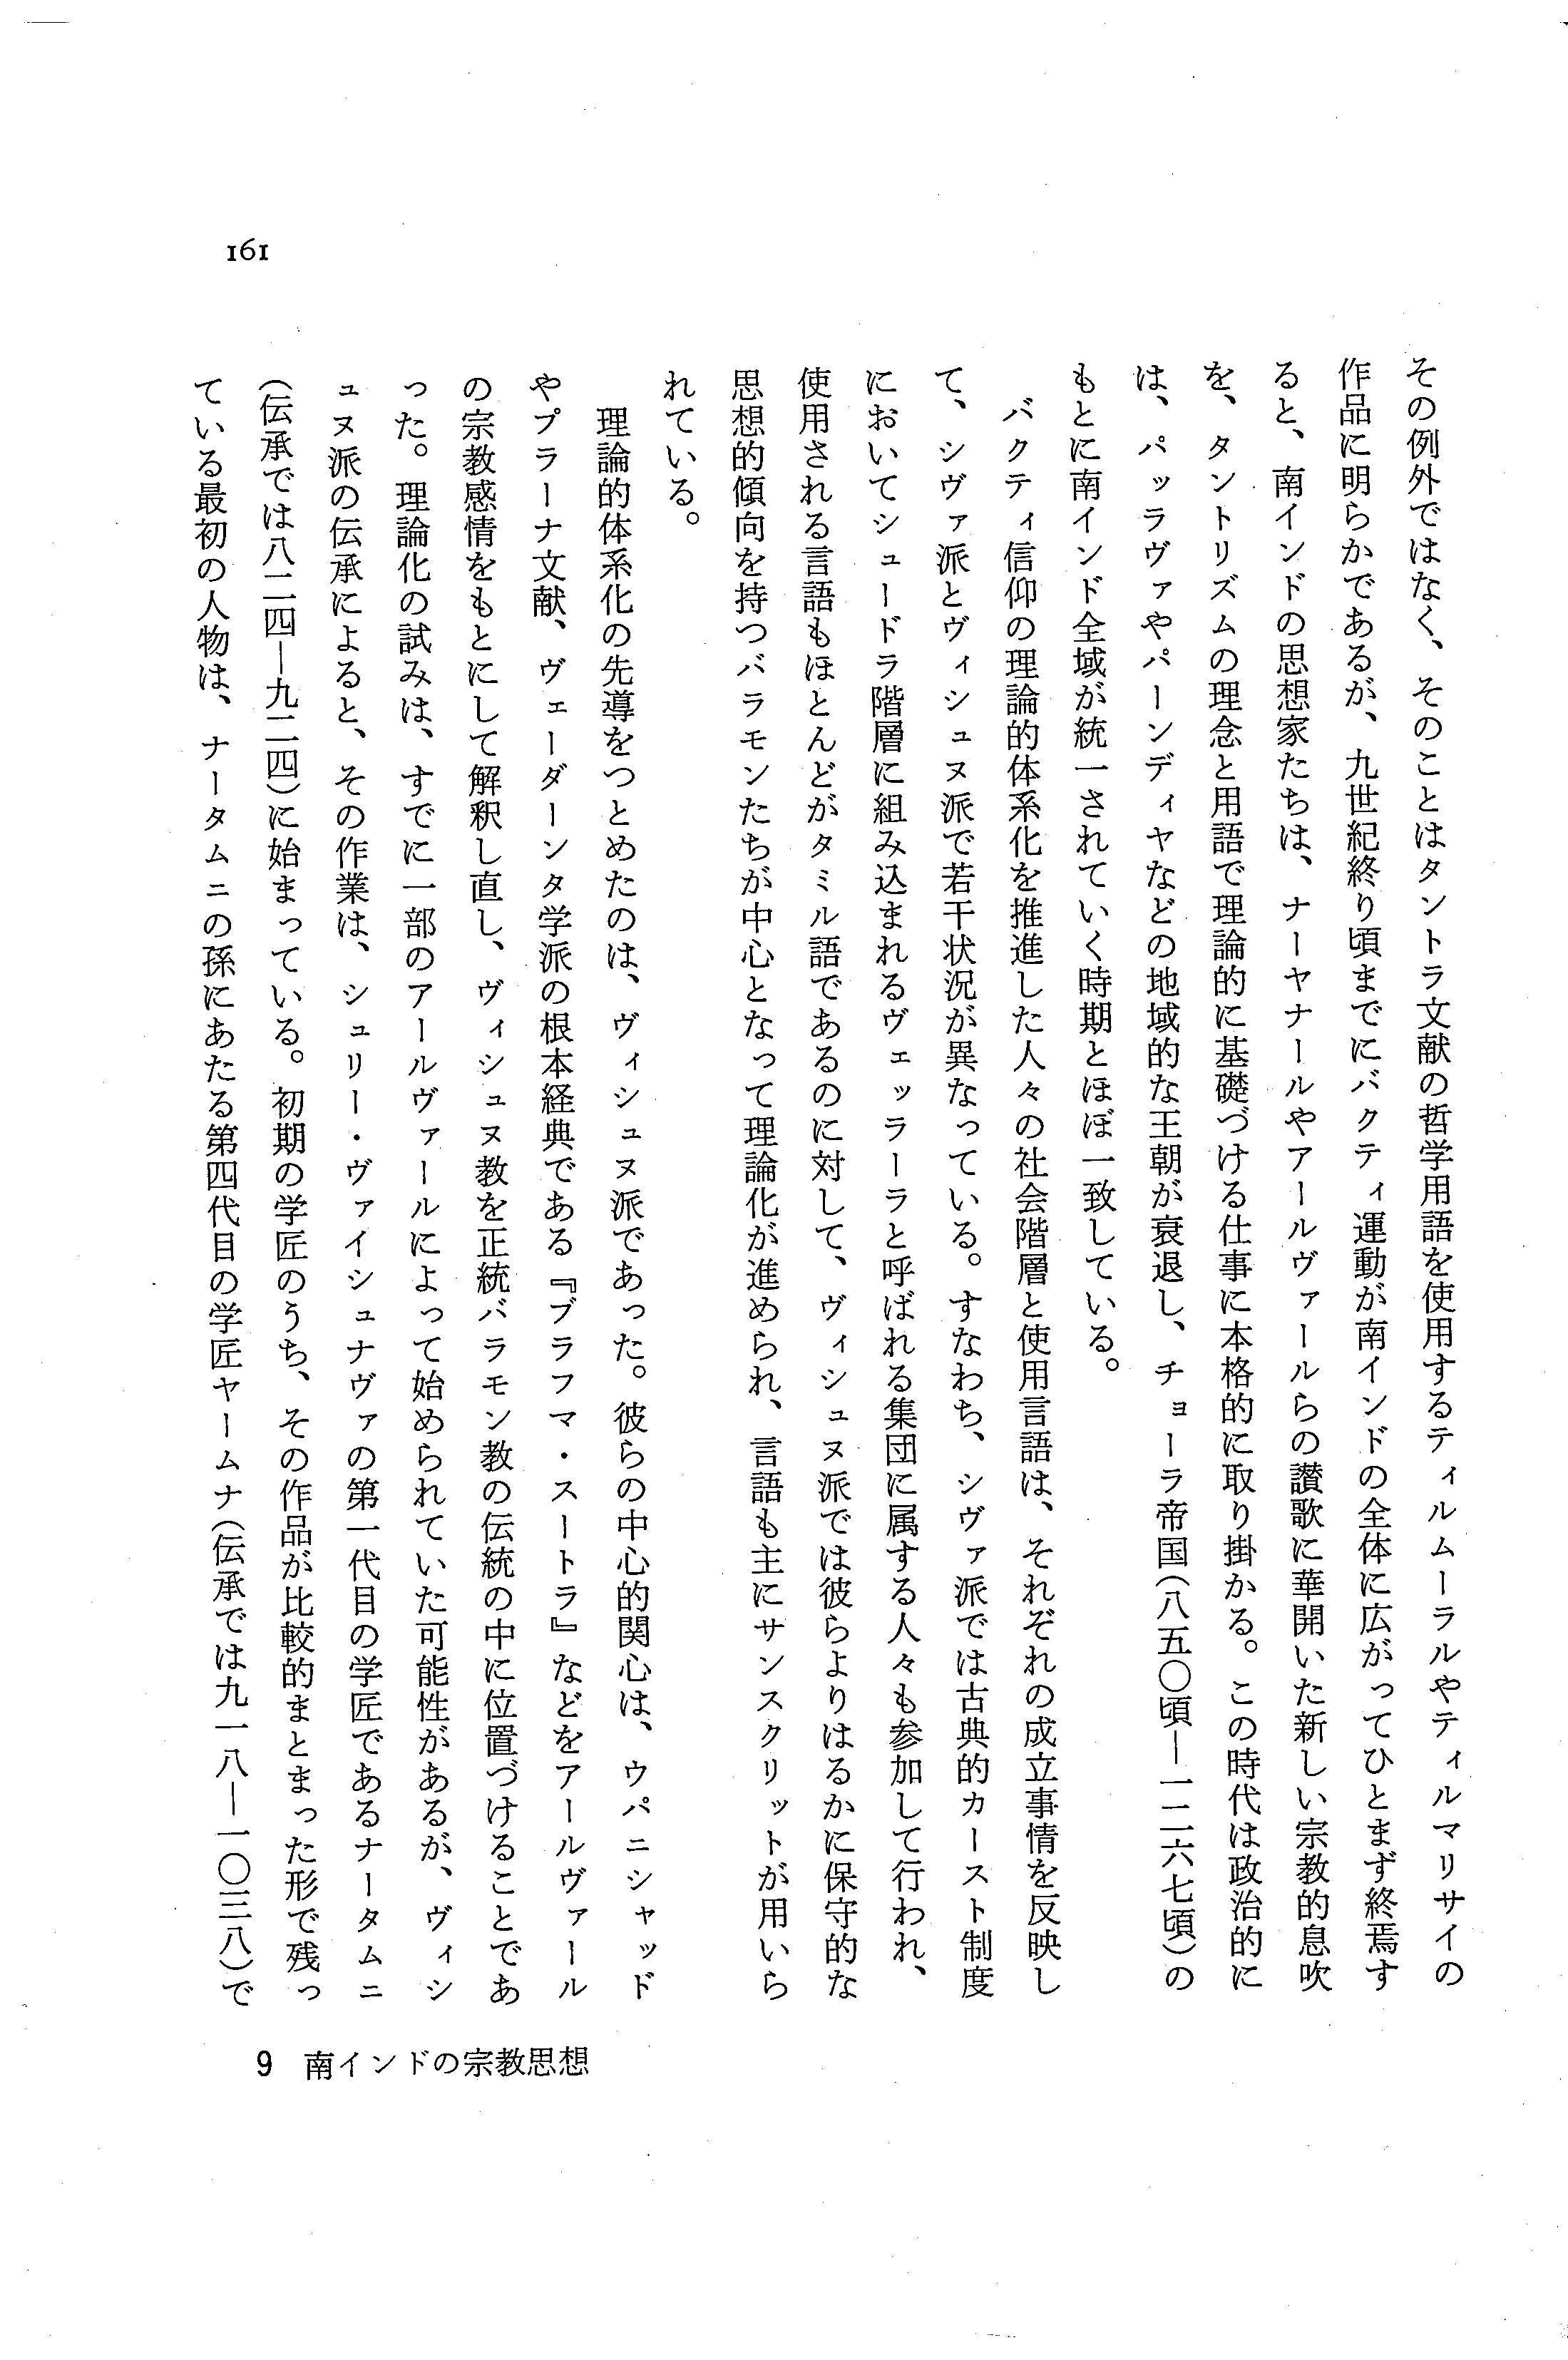 161
その例外ではなく、そのことはタントラ文献の哲学用語を使用するティルムーラルやティルマリサイの
作品に明らかであるが、九世紀終り頃までにバクティ運動が南インドの全体に広がってひとまず終焉す
ると、南インドの思想家たちは、ナーヤナールやアールヴァールらの讃歌に華開いた新しい宗教的息吹
を、タントリズムの理念と用語で理論的に基礎づける仕事に本格的に取り掛かる。この時代は政治的に
は、パッラヴァやパーンディヤなどの地域的な王朝が衰退し、チョーラ帝国(八五〇頃—一二六七頃)の
もとに南インド全域が統一されていく時期とほぼ一致している。
バクティ信仰の理論的体系化を推進した人々の社会階層と使用言語は、それぞれの成立事情を反映し
て、シヴァ派とヴィシュヌ派で若干状況が異なっている。すなわち、シヴァ派では古典的カースト制度
においてシュードラ階層に組み込まれるヴェッラーラと呼ばれる集団に属する人々も参加して行われ、
使用される言語もほとんどがタミル語であるのに対して、ヴィシュヌ派では彼らよりはるかに保守的な
思想的傾向を持つバラモンたちが中心となって理論化が進められ、言語も主にサンスクリットが用いら
れている。
理論的体系化の先導をつとめたのは、ヴィシュヌ派であった。彼らの中心的関心は、ウパニシャッド
やプラーナ文献、ヴェーダーンタ学派の根本経典である『ブラフマ・スートラ』などをアールヴァール
の宗教感情をもとにして解釈し直し、ヴィシュヌ教を正統バラモン教の伝統の中に位置づけることであ
った。理論化の試みは、すでに一部のアールヴァールによって始められていた可能性があるが、ヴィシ
ュヌ派の伝承によると、その作業は、シュリー・ヴァイシュナヴァの第一代目の学匠であるナータムニ
(伝承では八二四—九二四)に始まっている。初期の学匠のうち、その作品が比較的まとまった形で残っ
ている最初の人物は、ナータムニの孫にあたる第四代目の学匠ヤームナ(伝承では九一八—一〇三八)で
9 南インドの宗教思想